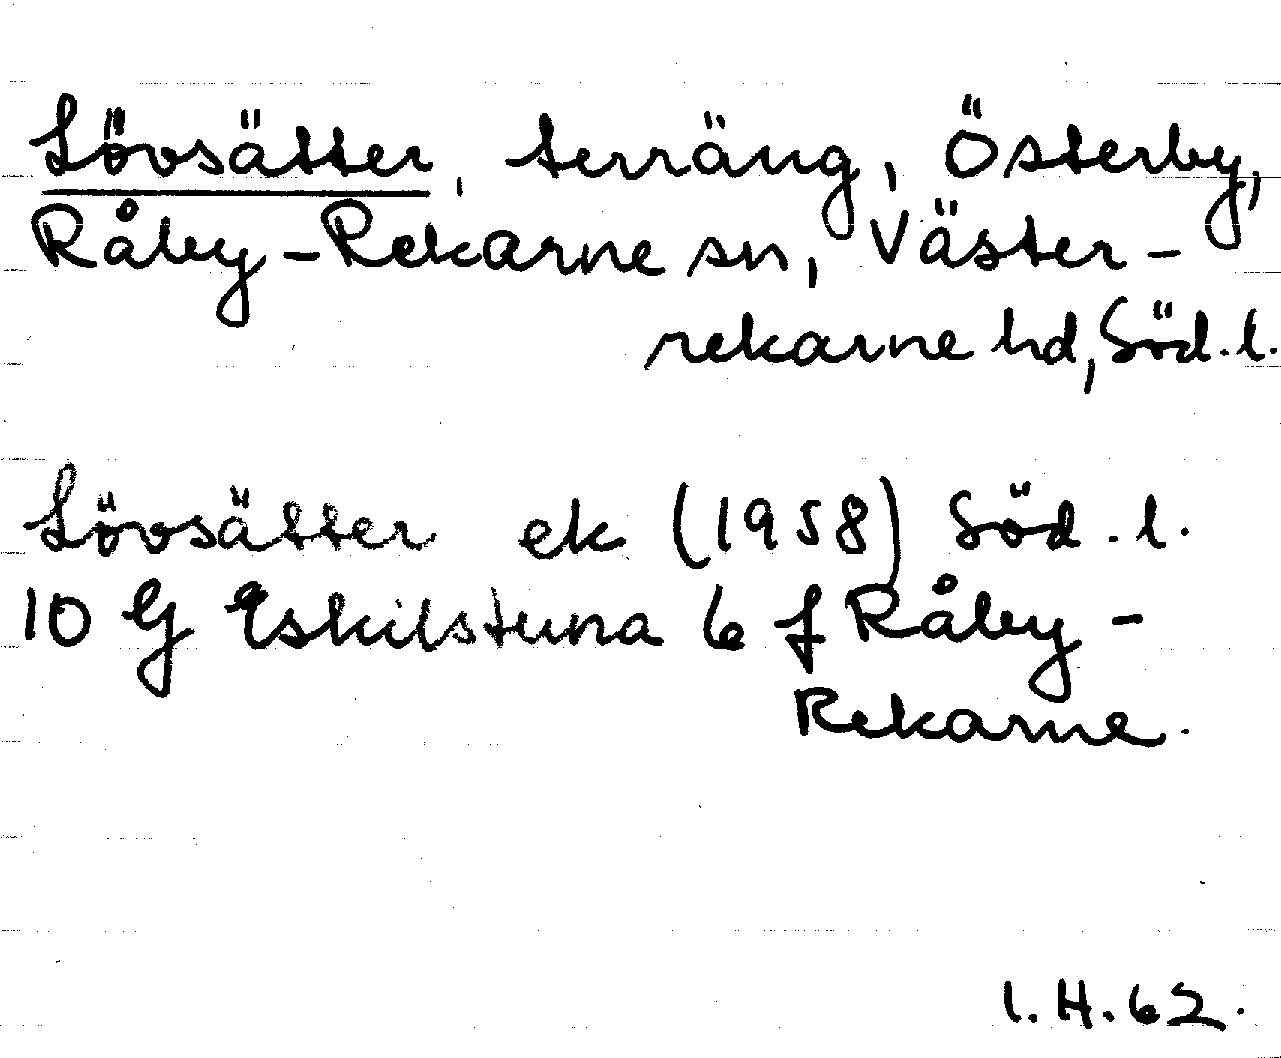 Lövsätter, terräng, Österby,
Råby-Rekarne sn, Väster-
rekarne hd, Söd. l.
Lövsätter ek (1958) Söd. l.
10 G Eskilstuna 6 f Råby-
Rekarne.
I. H. 62.